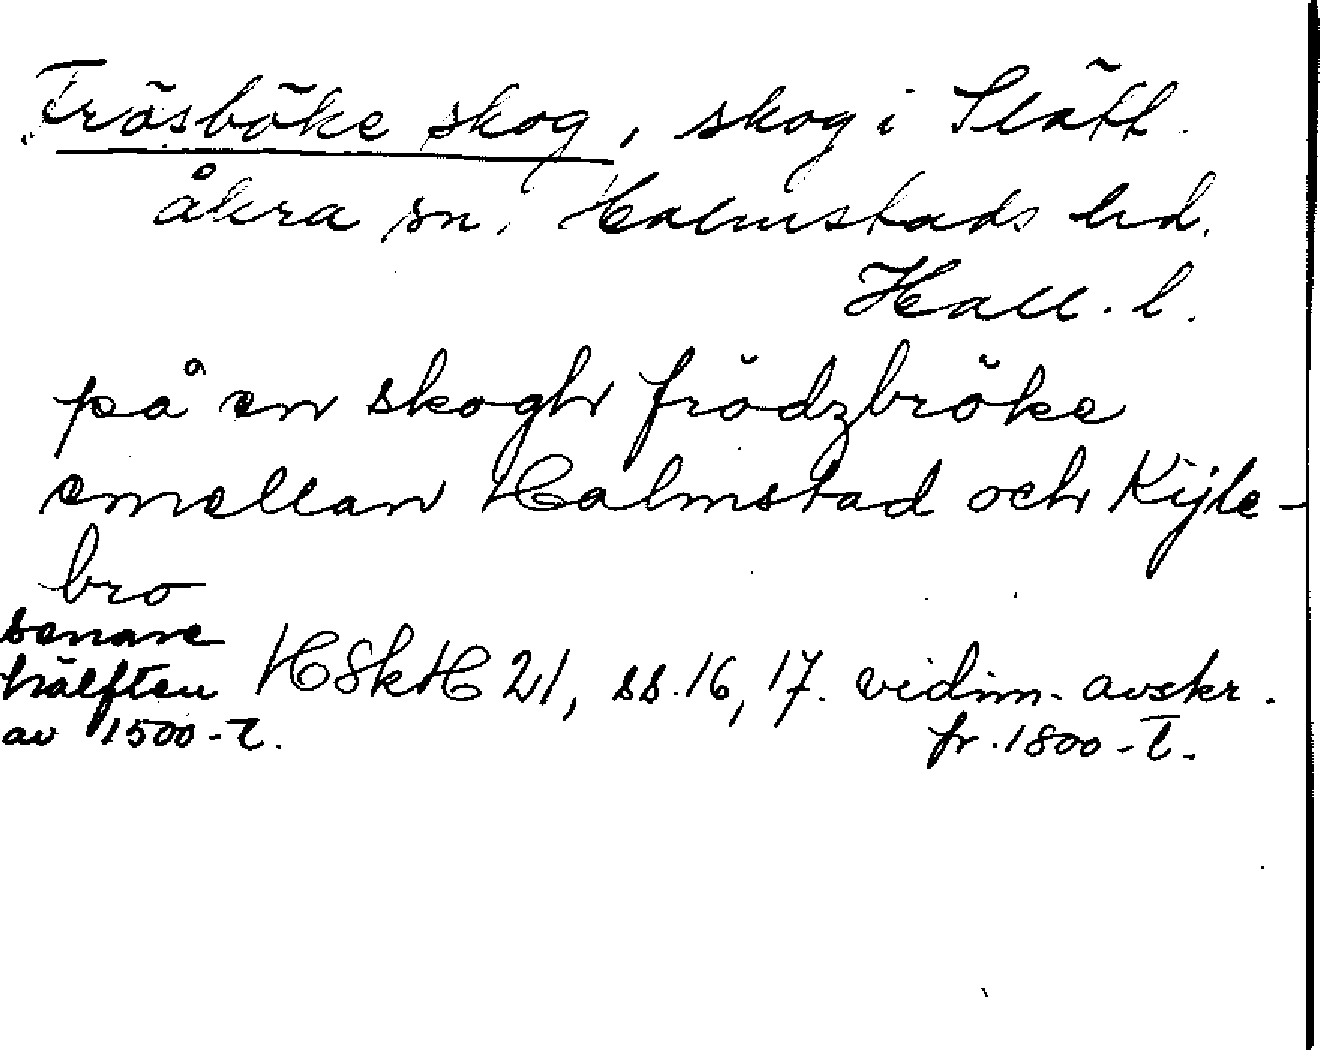 Frösböke skog, skog i Slätt.
åkra sn. Halmstads hd.
Hall. l.
på en skogh frödzbröke
emellan Halmstad och Kijle-
bro
senare
hälften HSkH 21, ss. 16, 17. vidim. avskr.
av 1500-t. fr. 1800-t.